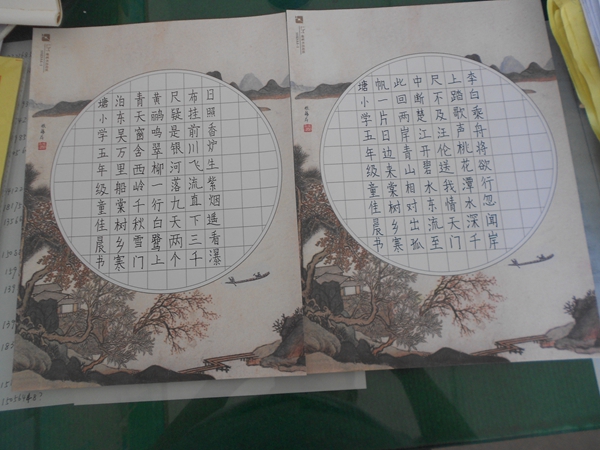 日照香炉生紫烟遥看瀑
布挂前川飞流直下三千
尺疑是银河落九天两个
黄鹂鸣翠柳一行白鹭上
青天窗含西岭千秋雪门
泊东吴万里船棠树乡寨
塘小学五年级童佳晨书
李白乘舟将欲行忽闻岸
上踏歌声桃花潭水深千
尺不及汪伦送我情天门
中断楚江开碧水东流至
此回两岸青山相对出孤
帆一片日边来棠树乡寨
塘小学五年级童佳晨书